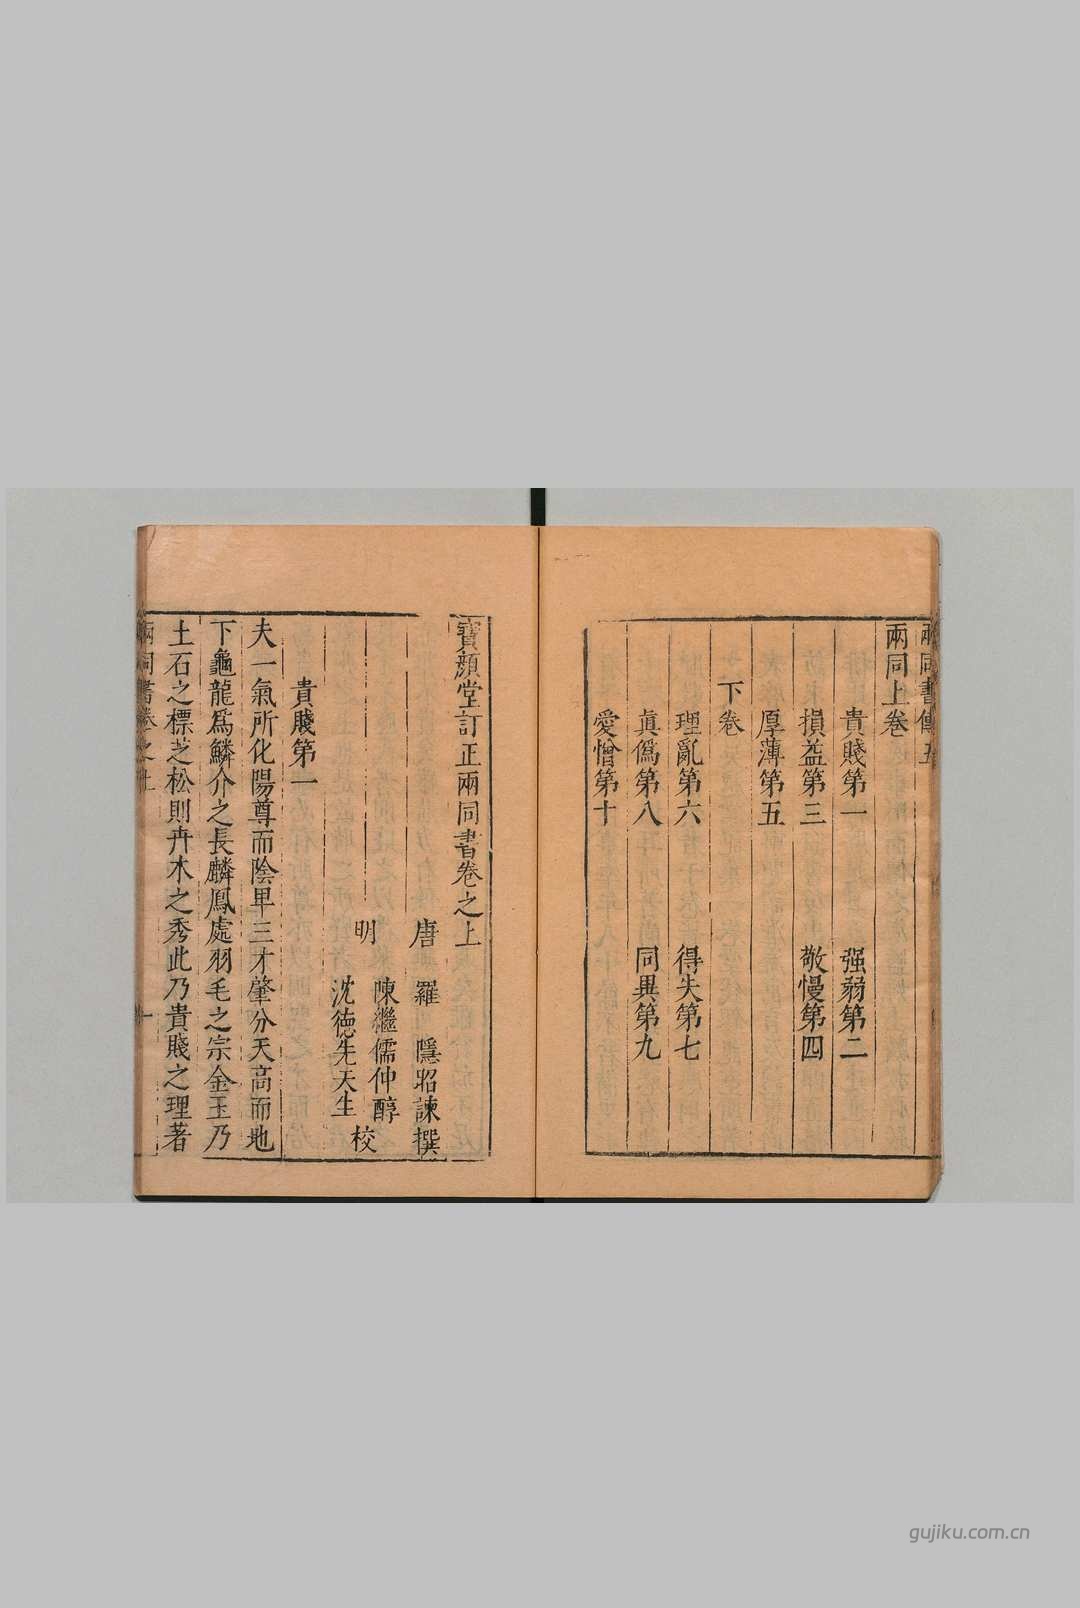 兩同書傳五
兩同上卷
貴賤第一　强弱第二
損益第三　敬慢第四
厚薄第五
下卷
理亂第六　得失第七
眞僞第八　同異第九
愛憎第十
寶顔堂訂正兩同書卷之上
唐　羅　隱昭諫撰
明　陳繼儒仲醇
沈德先天生　校
貴賤第一
夫一氣所化陽尊而陰卑三才肇分天高而地
下龜龍爲鱗介之長麟鳳處羽毛之宗金玉乃
土石之標芝松則卉木之秀此乃貴賤之理著
兩同書卷之上　一
gujiku.com.cn